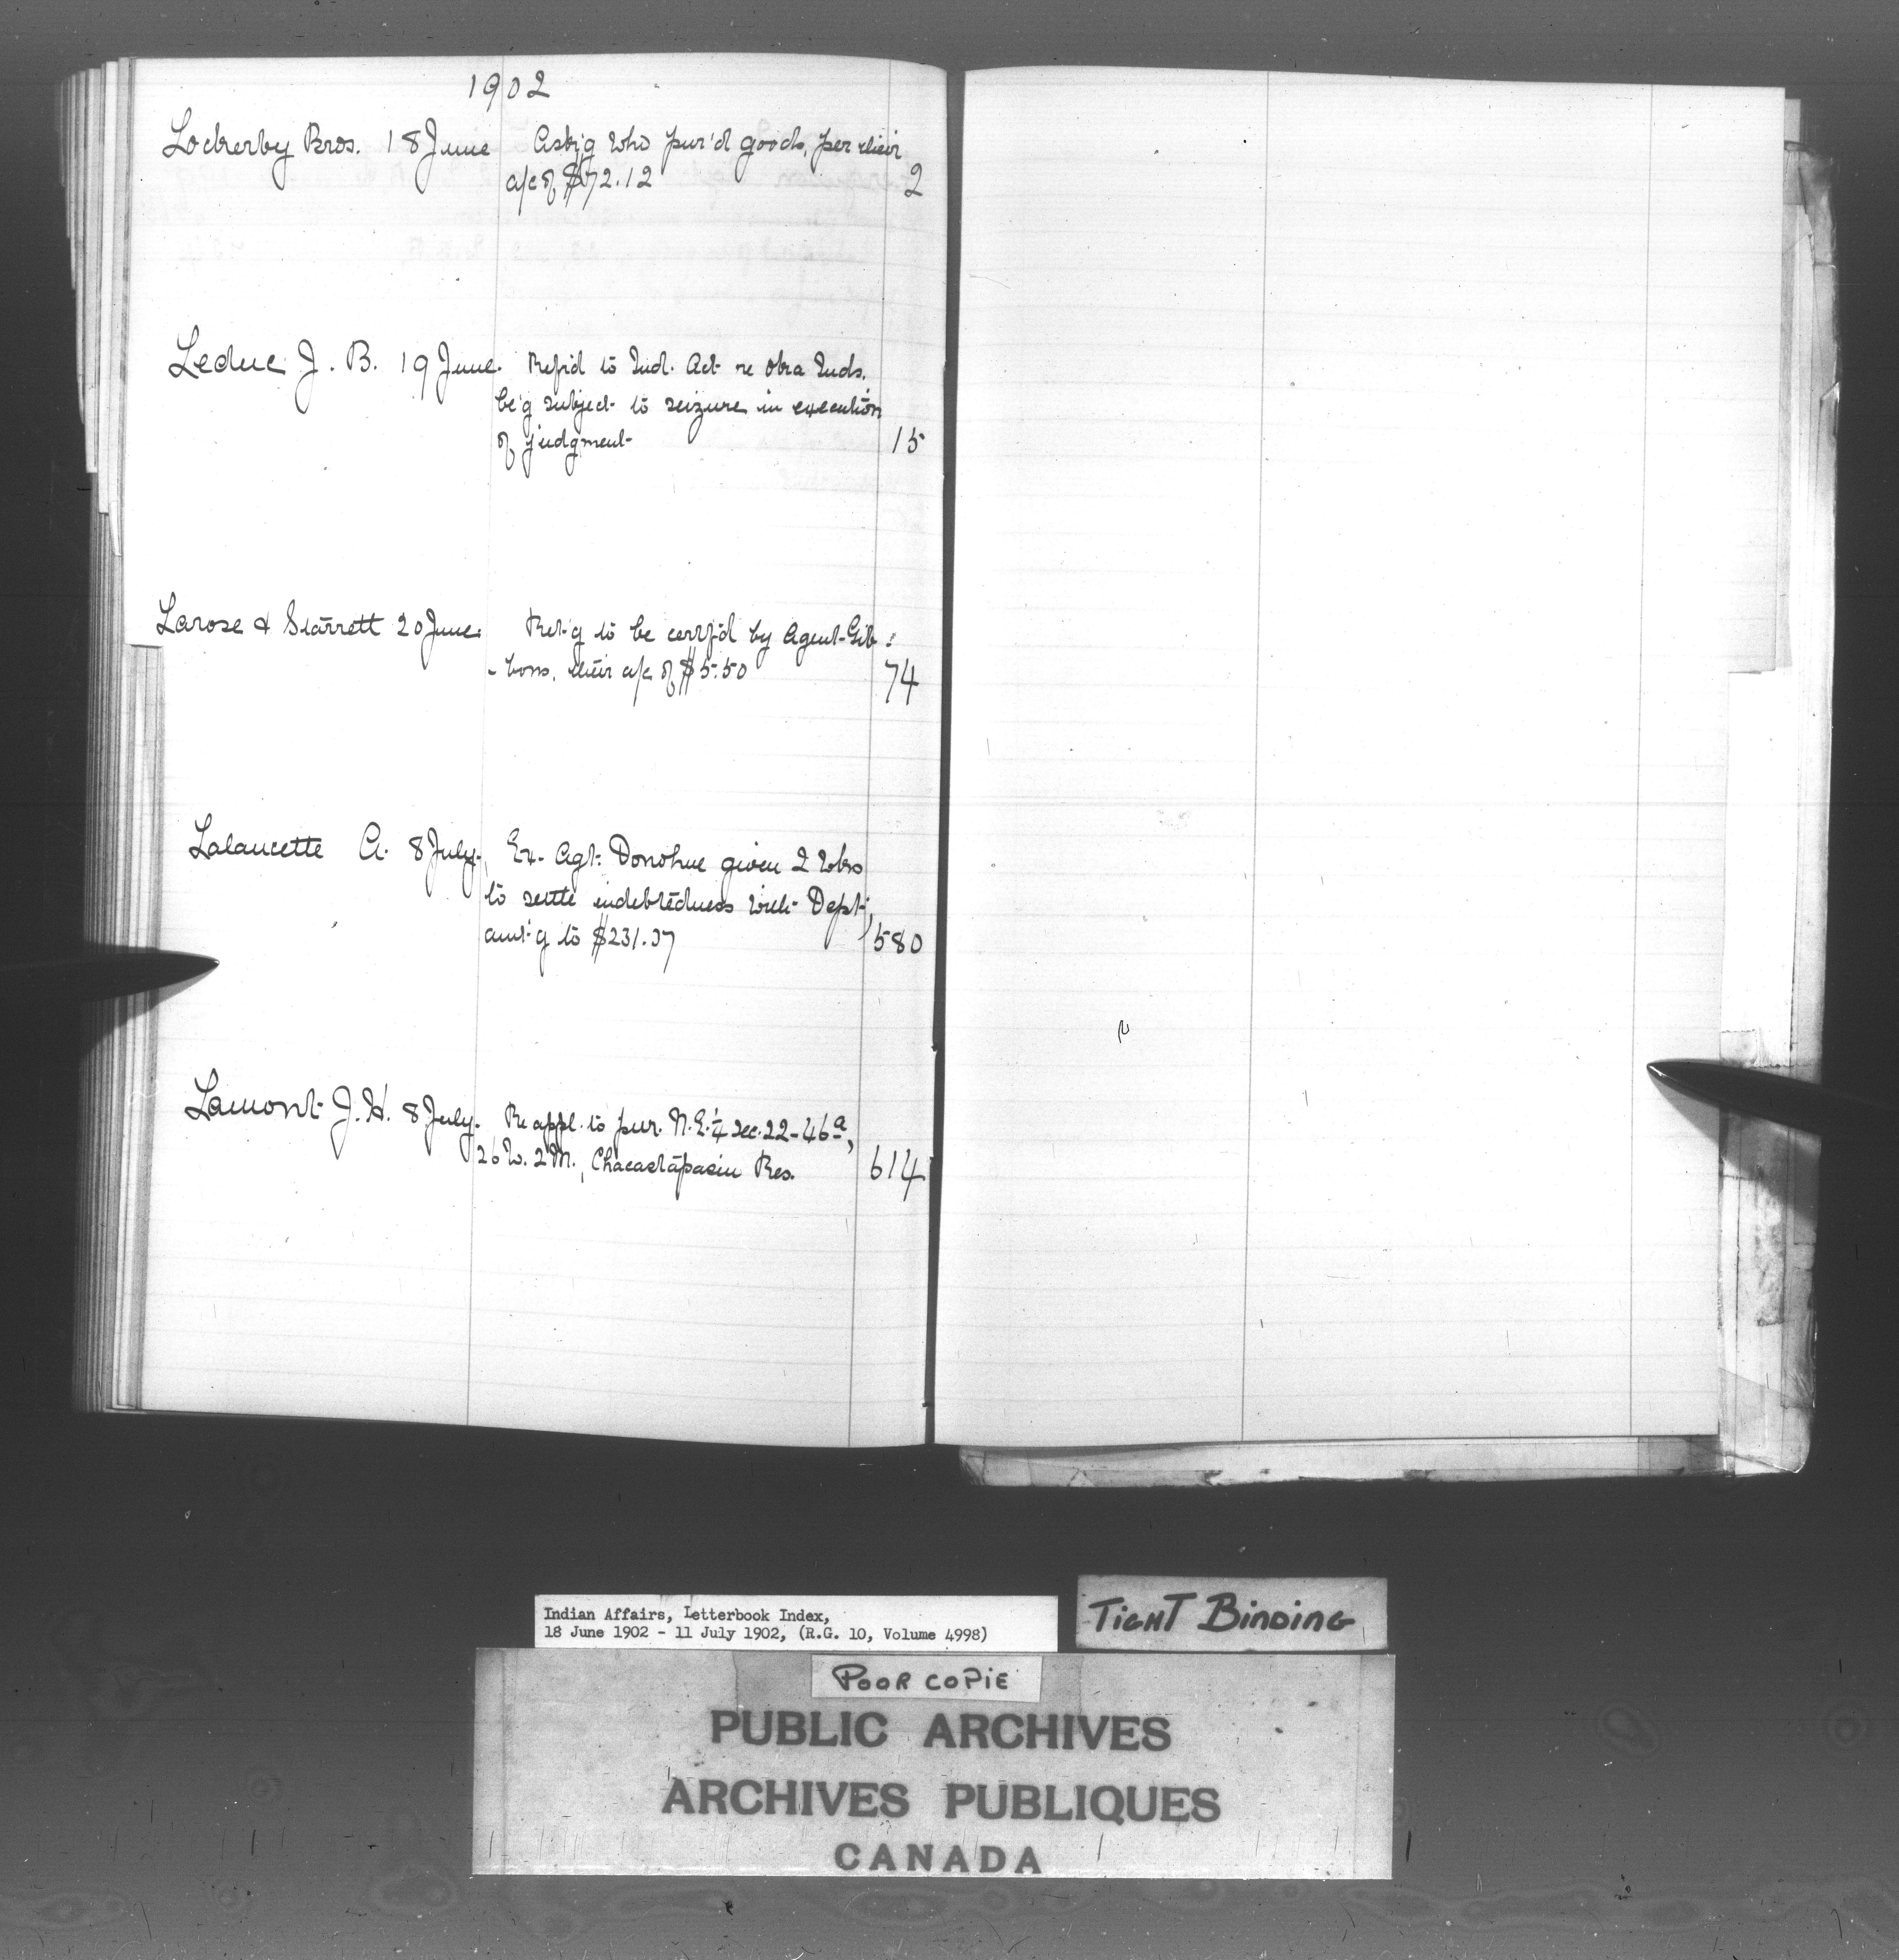 1902
Lockerby Bros. 18 June Ask'g who pur'd goods, per their
a/c of $72.12 2
Leduc J. B. 19 June. Ref'd to Ind. Act re Oka Inds.
be'g subject to seizure in execution
of judgment 15
Larose & Starrett 20 June. Ret'g to be certf'd by Agent Gib-
-bons, their a/c of $5.50 74
Lalancette A. 8 July. Ex-Agt. Donohue given 2 wks
to settle indebtedness with Dept;
amt'g to $231.37 580
Lamont J. H. 8 July. Re appl. to pur. N.E.¼ sec. 22-46a,
26 W. 2 M., Chacastapasin Res. 614
Indian Affairs, Letterbook Index,
18 June 1902 - 11 July 1902, (R.G. 10, Volume 4998)
TIGHT BINDING
POOR COPIE
PUBLIC ARCHIVES
ARCHIVES PUBLIQUES
CANADA